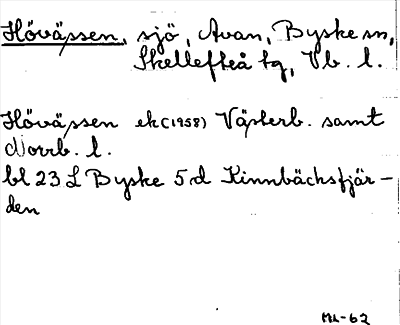 Hövässen, sjö, Avan, Byske sn,
Skellefteå tg, Vb. l.
Hövässen ek (1958) Västerb. samt
Norrb. l.
bl 23 L Byske 5 d Kinnbäcksfjär-
den